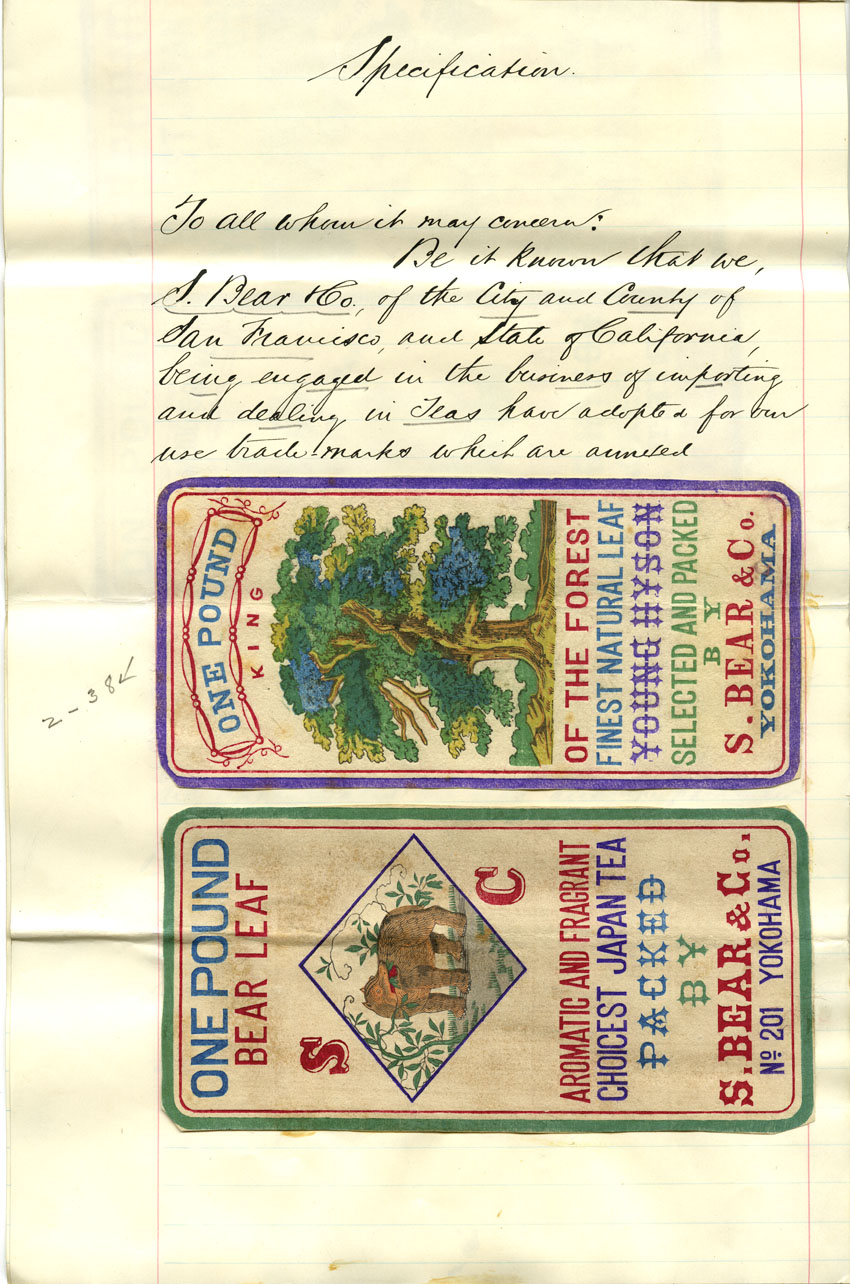 Specification.
To all whom it may concern:
Be it known that we,
S. Bear & Co., of the City and County of
San Francisco, and State of California,
being engaged in the business of importing
and dealing in Teas have adopted for our
use trade-marks which are annexed
2-38
ONE POUND
KING
OF THE FOREST
FINEST NATURAL LEAF
YOUNG HYSON
SELECTED AND PACKED
BY
S. BEAR & Co.
YOKOHAMA
ONE POUND
BEAR LEAF
S C
AROMATIC AND FRAGRANT
CHOICEST JAPAN TEA
PACKED
BY
S. BEAR & Co.
No 201 YOKOHAMA